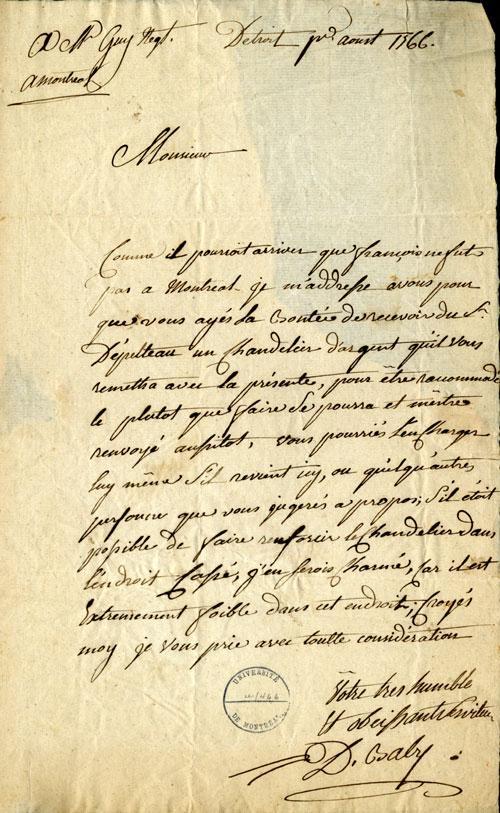 A Mr Guy Negt.
Detroit pr. aoust 1766.
a montreal
Monsieur
Comme il pouroit arriver que françois ne fut
pas a Montreal je m'addresse a vous pour
que vous ayés la Bontée de recevoir du Sr.
Dépelteau un Chandelier d'argent qu'il vous
remettra avec la présente, pour être racommodé
le plutot que faire se pourra et m'être
renvoyé aussitot, vous pourriés l'en Charger
luy même s'il revient icy, ou quelqu'autres
personne que vous jugerés a propos; s'il étoit
possible de faire renforcir le Chandelier dans
l'endroit Cassé, j'en serois Charmé, Car il est
Extremement foible dans cet endroit; Croyés
moy je vous prie avec toutte considération
Vôtre tres humble
Et obeissant serviteur
D. Baby
UNIVERSITÉ
DE MONTRÉAL